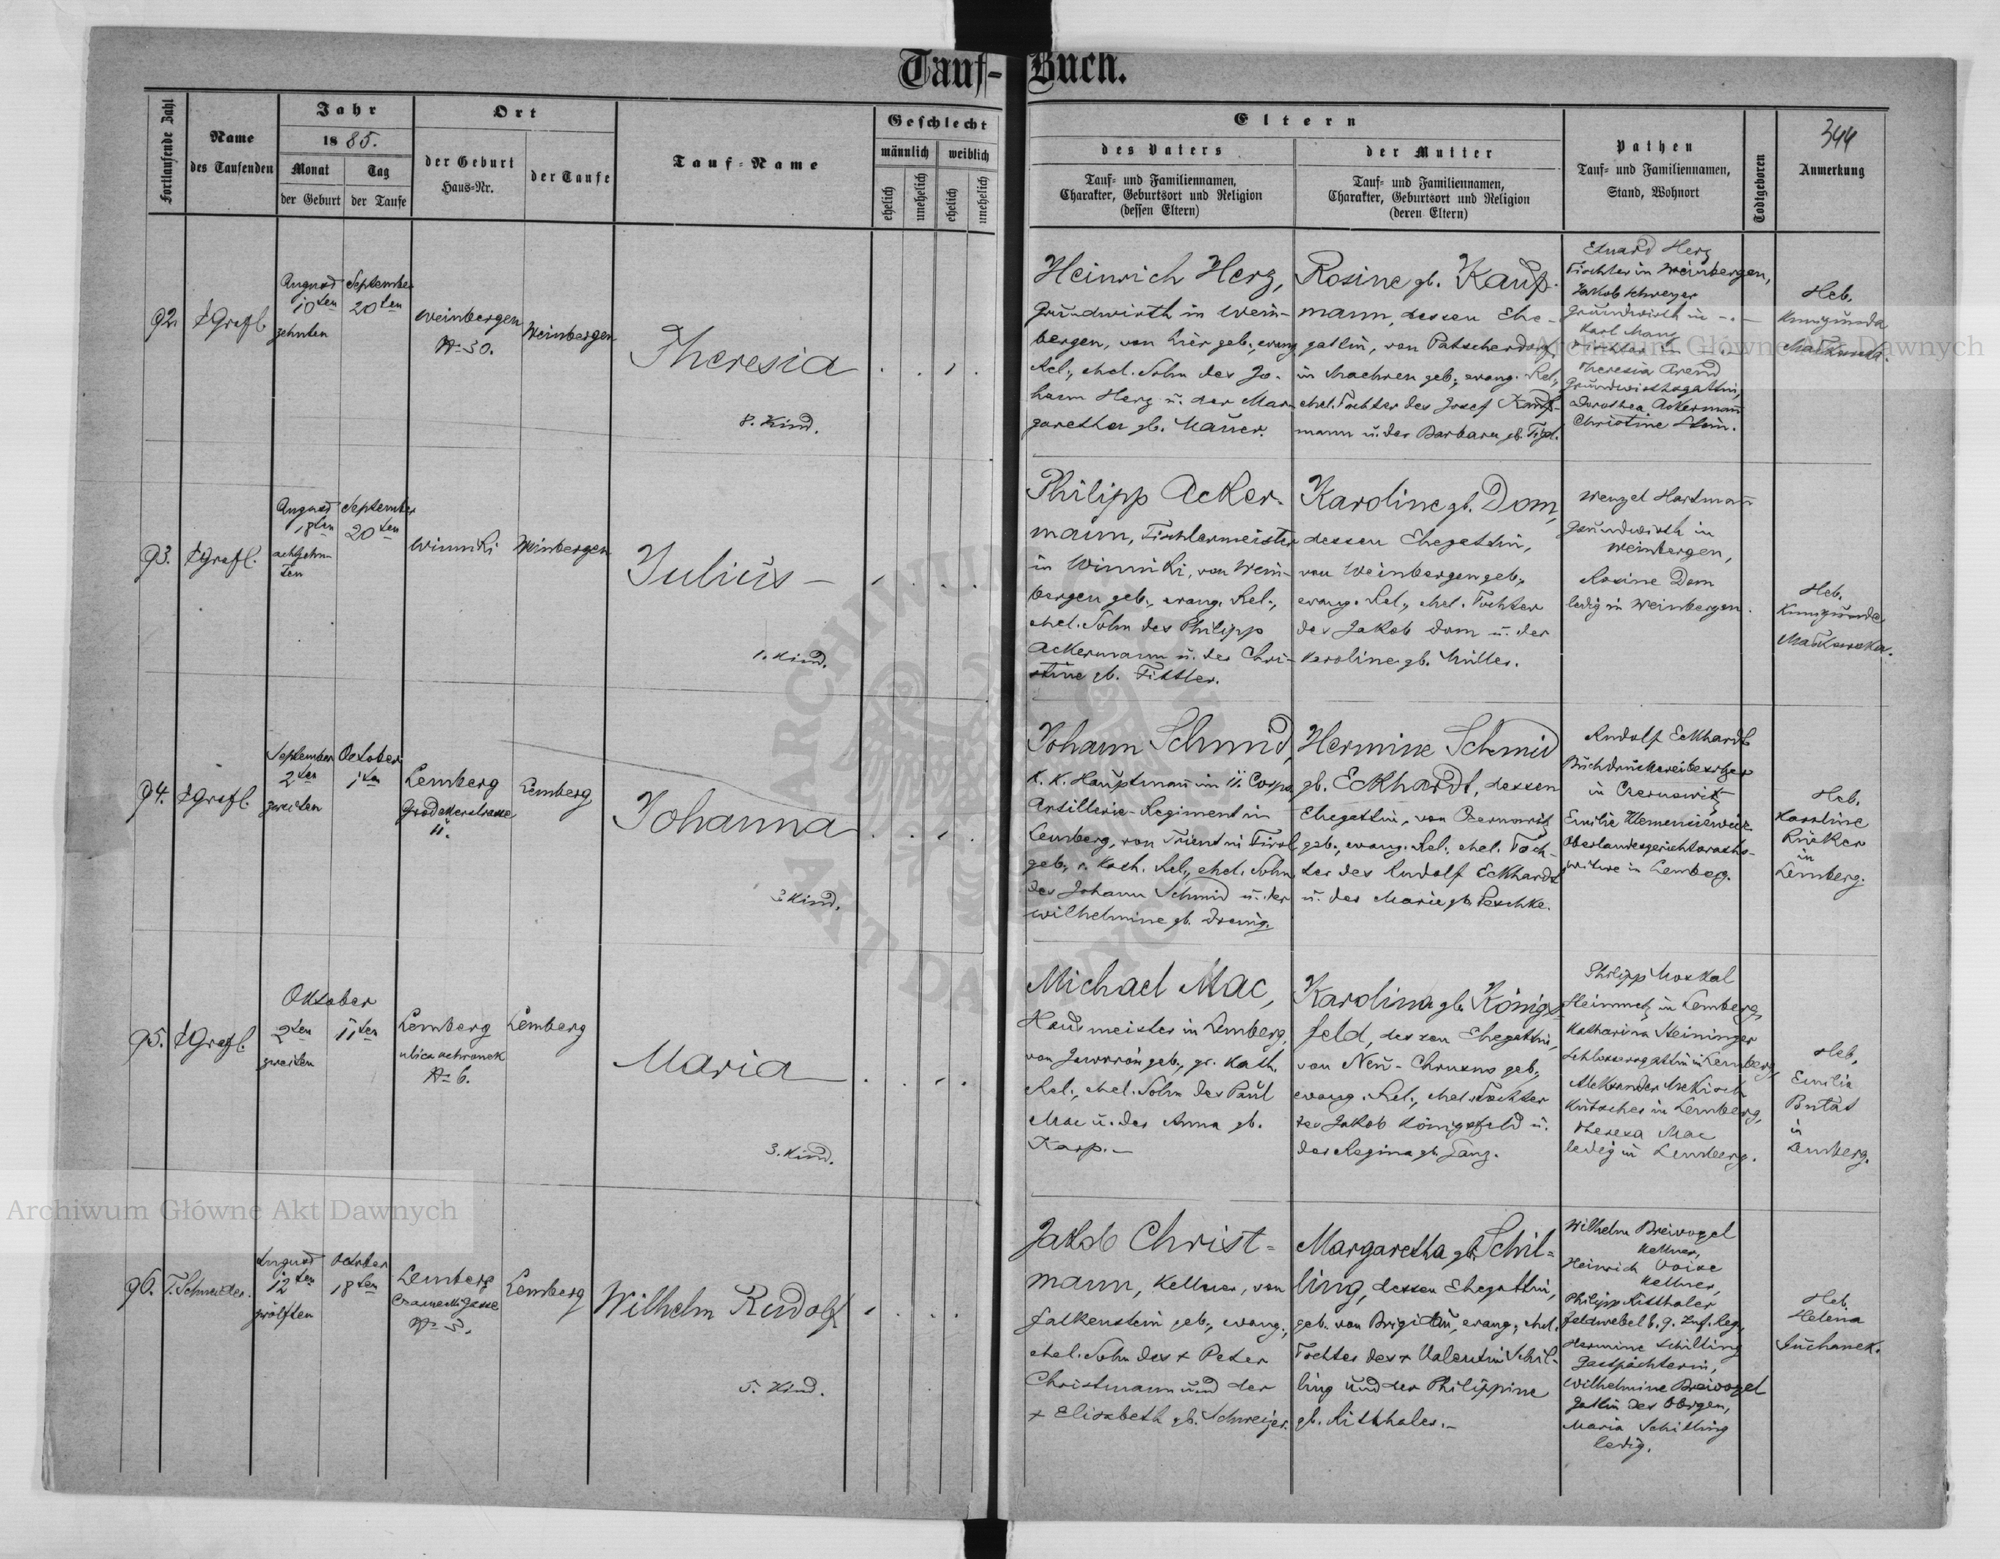 Tauf-Buch.
Fortlaufende Zahl
Name
des Taufenden
Jahr
1885.
Monat
Tag
der Geburt
der Taufe
Ort
der Geburt
Haus-Nr.
der Taufe
Tauf-Name
Geschlecht
männlich
weiblich
ehelich
unehelich
ehelich
unehelich
Eltern
des Vaters
Tauf- und Familiennamen,
Charakter, Geburtsort und Religion
(dessen Eltern)
der Mutter
Tauf- und Familiennamen,
Charakter, Geburtsort und Religion
(deren Eltern)
Pathen
Tauf- und Familiennamen,
Stand, Wohnort
Todtgeboren
344
Anmerkung
92.
August
10ten
zehnten
September
20ten
Weinbergen
No 30.
Weinbergen
Theresia
8. Kind.
Heinrich Herz,
Grundwirth in Wein-
bergen, von hier geb., evang.
Rel., ehel. Sohn des Jo-
hann Herz u. der Mar-
garetha gb. Mauer.
Rosine gb. Kauf-
mann, dessen Ehe-
gattin, von
in Maehren geb., evang. Rel.,
ehel. Tochter des Josef Kauf-
mann u. der Barbara gb.
Eduard Herz
Tischler in Weinbergen,
Jakob Schweyer
Grundwirth in
Karl Manz
Theresia Arend
Grundwirthsgattin,
Dorothea Ackermann
Christine Stein.
Heb.
Kunigunda
93.
August
18ten
achtzehn-
ten
September
20ten
Winniki
Weinbergen
Julius
1. Kind.
Philipp Acker-
mann, Tischlermeister
in Winniki, von Wein-
bergen geb., evang. Rel.,
ehel. Sohn des Philipp
Ackermann u. der Chri-
stine gb.
Karoline gb. Dom,
dessen Ehegattin,
von Weinbergen geb.,
evang. Rel., ehel. Tochter
des Jakob Dom u. der
Karoline gb. Müller.
Wenzel Hartmann
Grundwirth in
Weinbergen,
Rosine Dom
ledig in Weinbergen.
Heb.
Kunigunda
94.
September
2ten
zweiten
October
1ten
Lemberg
Grodekerstrasse
11.
Lemberg
Johanna
3 Kind.
Johann Schmid,
k. k. Hauptmann im 11. Corps
Artillerie-Regiment in
Lemberg, von Trient in Tirol
geb., r. kath. Rel., ehel. Sohn
des Johann Schmid u. der
Wilhelmine gb.
Hermine Schmid
gb. Eckhardt, dessen
Ehegattin, von Czernowitz
geb., evang. Rel., ehel. Toch-
ter des Rudolf Eckhardt
u. der Marie gb. Peschke.
Rudolf Eckhardt
Buchdruckereibesitzer
in Czernowitz
Emilie Klemensiewicz
Oberlandesgerichtsraths-
witwe in Lemberg.
Heb.
Karoline
Rücker
in
Lemberg.
95.
Oktober
2ten
zweiten
11ten
Lemberg
ulica ochronek
No 6.
Lemberg
Maria
3. Kind.
Michael Mac,
Hausmeister in Lemberg,
von Jaworów geb., gr. kath.
Rel., ehel. Sohn des Paul
Mac u. der Anna gb.
Karp.
Karolina gb. Königs-
feld, dessen Ehegattin,
von Neu-Chrusno geb.,
evang. Rel., ehel. Tochter
des Jakob Königsfeld u.
der Regina gb. Ganz.
Philipp Moskal
in Lemberg,
Katharina Steininger
Schlossersgattin in Lemberg,
Kutscher in Lemberg,
Theresa Mac
ledig in Lemberg.
Heb.
Emilie
in
Lemberg.
96.
T. Schneider.
August
12ten
zwölften
October
18ten
Lemberg
No 3.
Lemberg
Wilhelm Rudolf
5. Kind.
Jakob Christ-
mann, Kellner, von
Falkenstein geb., evang.,
ehel. Sohn des + Peter
Christmann und der
+ Elisabeth gb. Schweizer.
Margaretha gb. Schil-
ling, dessen Ehegattin,
geb. von Brigidau, evang., ehel.
Tochter des + Valentin Schil-
ling und der Philippine
gb. Ritthaler.
Wilhelm Breivogel
Kellner,
Heinrich
Kellner,
Philipp Ritthaler
Feldwebel b. 9. Inf. Reg.,
Hermine Schilling
Gastpächterin,
Wilhelmine Breivogel
Gattin des Obigen,
Maria Schilling
ledig.
Heb.
Helena
Suchanek.
Archiwum Główne Akt Dawnych
Archiwum Główne Akt Dawnych